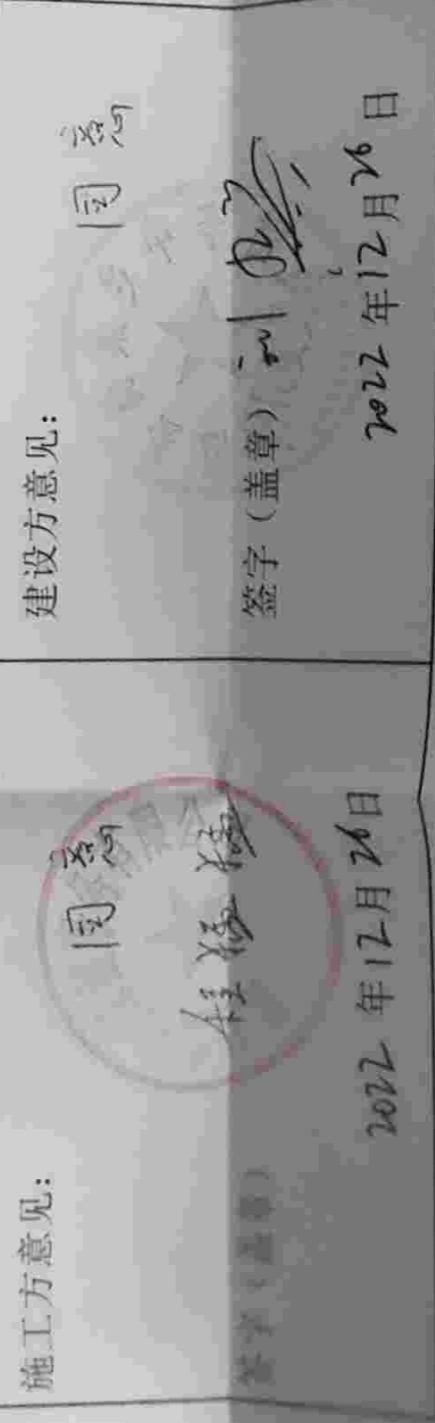 施工方意见:
同意
签字(盖章)
2022年12月26日
建设方意见:
同意
签字(盖章)
2022年12月26日